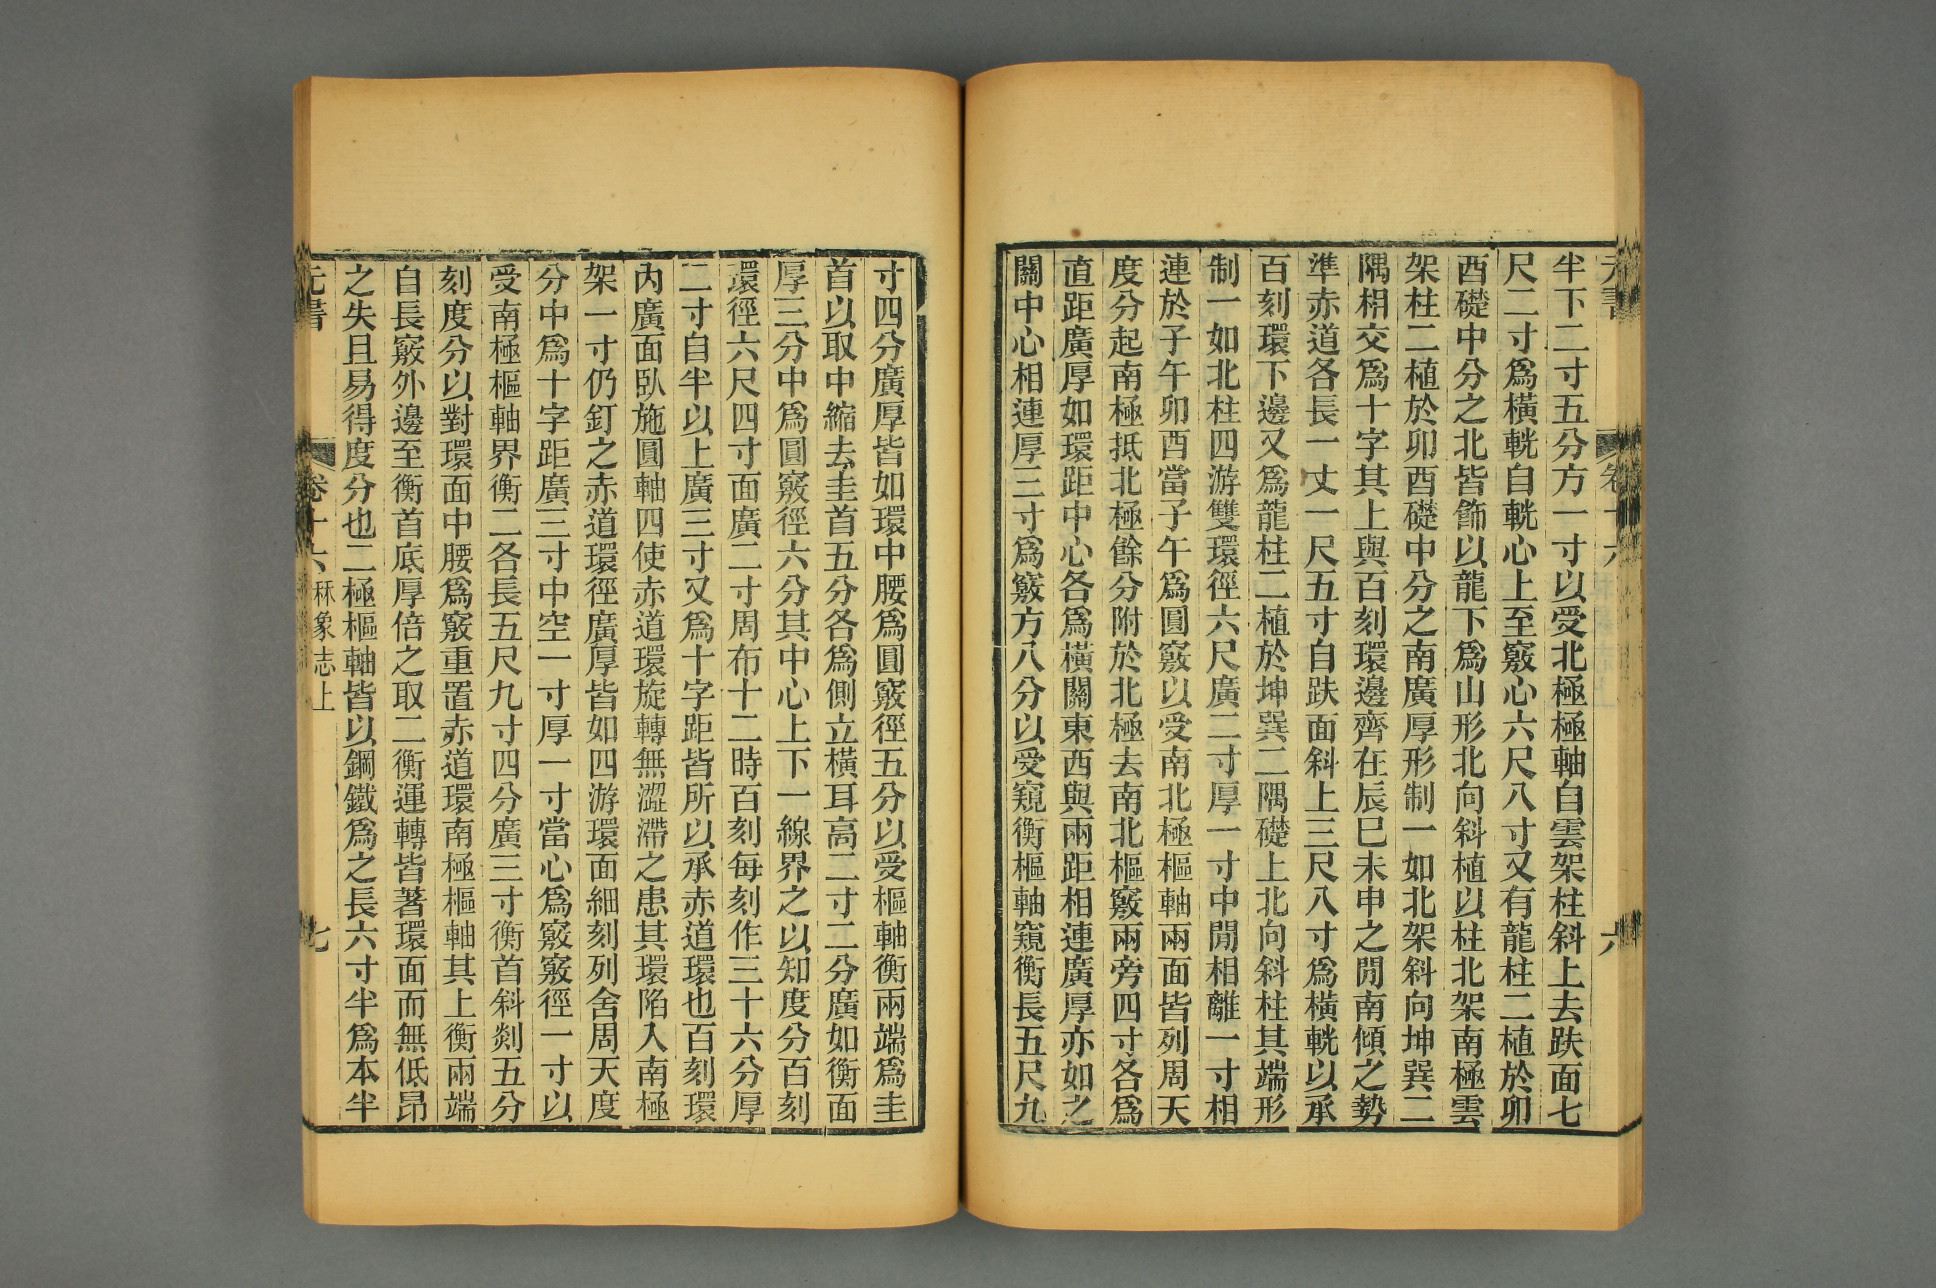 元書
卷十六
六
半下二寸五分方一寸以受北極極軸自雲架柱斜上去趺面七
尺二寸爲橫輄自輄心上至竅心六尺八寸又有龍柱二植於卯
酉礎中分之北皆飾以龍下爲山形北向斜植以柱北架南極雲
架柱二植於卯酉礎中分之南廣厚形制一如北架斜向坤巽二
隅相交爲十字其上與百刻環邊齊在辰巳未申之閒南傾之勢
準赤道各長一丈一尺五寸自趺面斜上三尺八寸爲橫輄以承
百刻環下邊又爲龍柱二植於坤巽二隅礎上北向斜柱其端形
制一如北柱四游雙環徑六尺廣二寸厚一寸中閒相離一寸相
連於子午卯酉當子午爲圓竅以受南北極樞軸兩面皆列周天
度分起南極抵北極餘分附於北極去南北樞竅兩旁四寸各爲
直距廣厚如環距中心各爲橫關東西與兩距相連廣厚亦如之
關中心相連厚三寸爲竅方八分以受窺衡樞軸窺衡長五尺九
寸四分廣厚皆如環中腰爲圓竅徑五分以受樞軸衡兩端爲圭
首以取中縮去圭首五分各爲側立橫耳高二寸二分廣如衡面
厚三分中爲圓竅徑六分其中心上下一線界之以知度分百刻
環徑六尺四寸面廣二寸周布十二時百刻每刻作三十六分厚
二寸自半以上廣三寸又爲十字距皆所以承赤道環也百刻環
內廣面臥施圓軸四使赤道環旋轉無澀滯之患其環陷入南極
架一寸仍釘之赤道環徑廣厚皆如四游環面細刻列舍周天度
分中爲十字距廣三寸中空一寸厚一寸當心爲竅竅徑一寸以
受南極樞軸界衡二各長五尺九寸四分廣三寸衡首斜剡五分
刻度分以對環面中腰爲竅重置赤道環南極樞軸其上衡兩端
自長竅外邊至衡首底厚倍之取二衡運轉皆著環面而無低昂
之失且易得度分也二極樞軸皆以鋼鐵爲之長六寸半爲本半
元書
卷十六
秝象志上
七